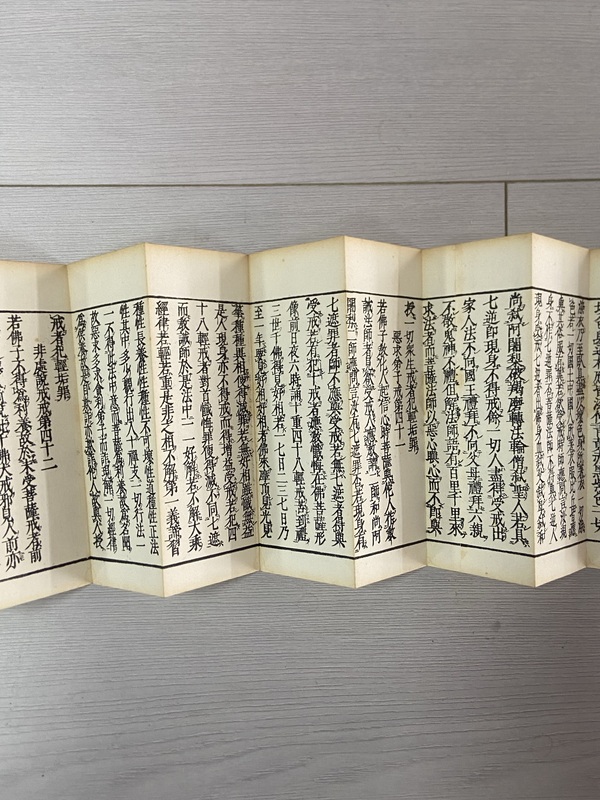 染衣乃至臥具盡以壞色身所著衣一切染
色若一切國土中國人所著衣服比丘皆應
與其俗服有異若欲受戒時師應問言
現身不作七逆罪耶菩薩法師不得與七逆人
現身受戒七逆者出佛身血弒父弒母弒和
尚弒阿闍梨破羯磨轉法輪僧弒聖人若具
七逆即現身不得戒餘一切人盡得受戒出
家人法不向國王禮拜不向父母禮拜六親
不敬鬼神不禮但解法師語有百里千里來
求法者而菩薩法師以惡心瞋心而不即與
授一切衆生戒者犯輕垢罪
惡求弟子戒第四十一
若佛子教化人起信心時菩薩與他人作教
誡法師者見欲受戒人應教請二師和尚阿
闍梨二師應問言汝有七遮罪不若現身有
七遮罪者師不應與受戒若無七遮者得與
受戒若有犯十戒者應教懺悔在佛菩薩形
像前日夜六時誦十重四十八輕戒苦到禮
三世千佛得見好相若一七日二三七日乃
至一年要見好相好相者佛來摩頂見光見
華種種異相便得滅罪若無好相雖懺無益
是人現身亦不得戒而得增益受戒若犯四
十八輕戒者對首懺悔罪便得滅不同七遮
而教誡師於是法中一一好解若不解大乘
經律若輕若重是非之相不解第一義諦習
種性長養性性種性不可壞性道種性正法
性其中多少觀行出入十禪支一切行法一
一不得此法中意而菩薩爲利養故爲名聞
故惡求多求貪利弟子而詐現解一切經律
爲供養故是自欺詐亦欺詐他人故與人授
戒者犯輕垢罪
非處說戒戒第四十二
若佛子不得爲利養故於未受菩薩戒者前